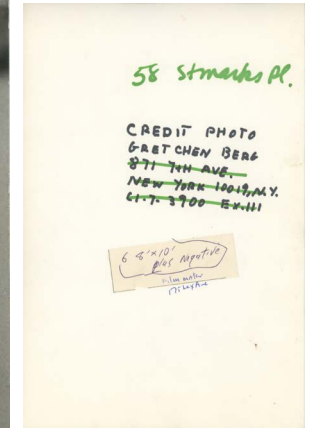 58 St marks Pl.
CREDIT PHOTO
GRETCHEN BERG
871 7TH AVE.
NEW YORK 10019, N.Y.
CI. 7. 3900 EX. 111
6 8'x10'
plus negative
Film maker
175 Lex Ave